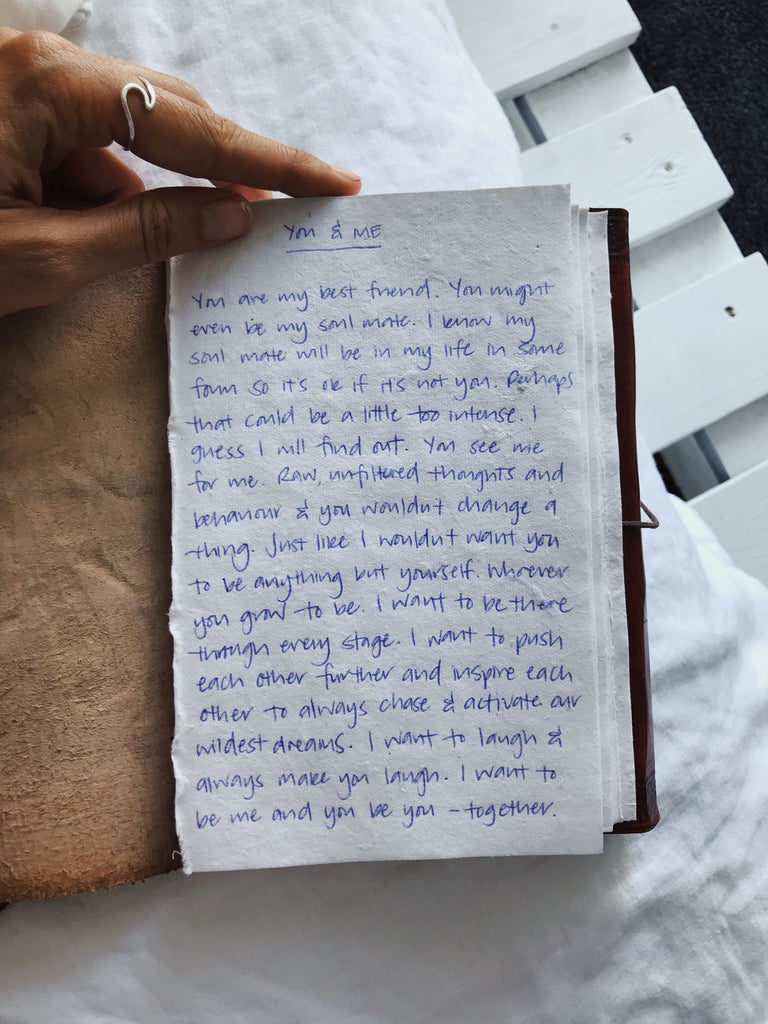 You & ME
You are my best friend. You might
even be my soul mate. I know my
soul mate will be in my life in some
form so it's ok if it's not you. Perhaps
that could be a little too intense. I
guess I will find out. You see me
for me. Raw, unfiltered thoughts and
behaviour & you wouldn't change a
thing. Just like I wouldn't want you
to be anything but yourself. Whoever
you grow to be. I want to be there
through every stage. I want to push
each other further and inspire each
other to always chase & activate our
wildest dreams. I want to laugh &
always make you laugh. I want to
be me and you be you - together.